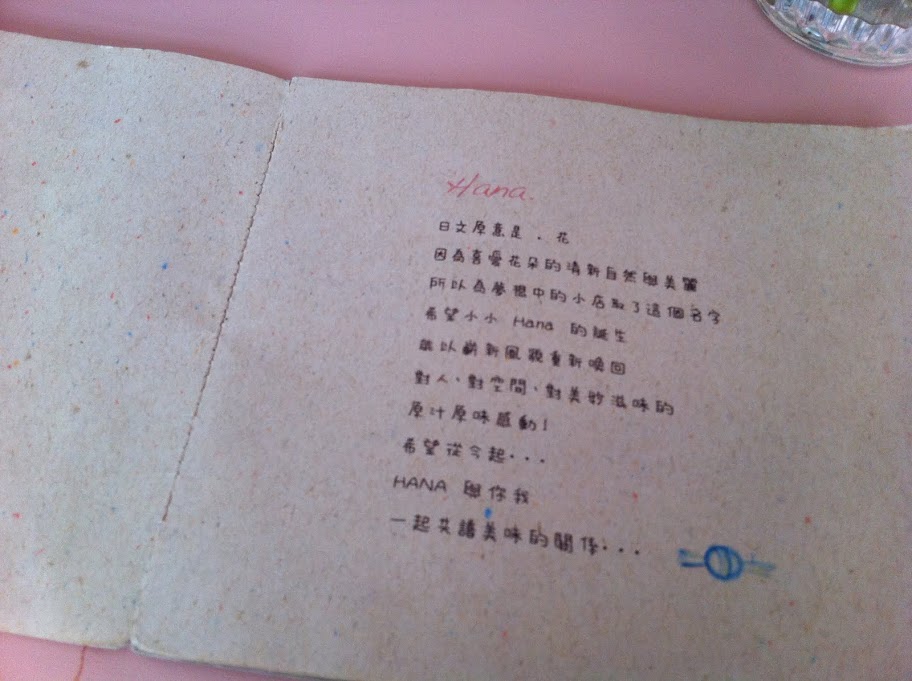 Hana.
日文原意是．花
因為喜愛花朵的清新自然與美麗
所以為夢想中的小店取了這個名字
希望小小 Hana 的誕生
能以嶄新風貌重新喚回
對人、對空間、對美妙滋味的
原汁原味感動！
希望從今起...
HANA 與你我
一起共譜美味的關係...